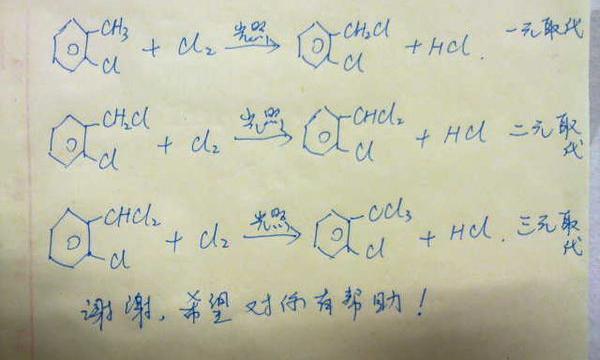 CH3 Cl + Cl2 光照→ CH2Cl Cl + HCl. 一元取代
CH2Cl Cl + Cl2 光照→ CHCl2 Cl + HCl 二元取代
CHCl2 Cl + Cl2 光照→ CCl3 Cl + HCl. 三元取代
谢谢,希望对你有帮助!